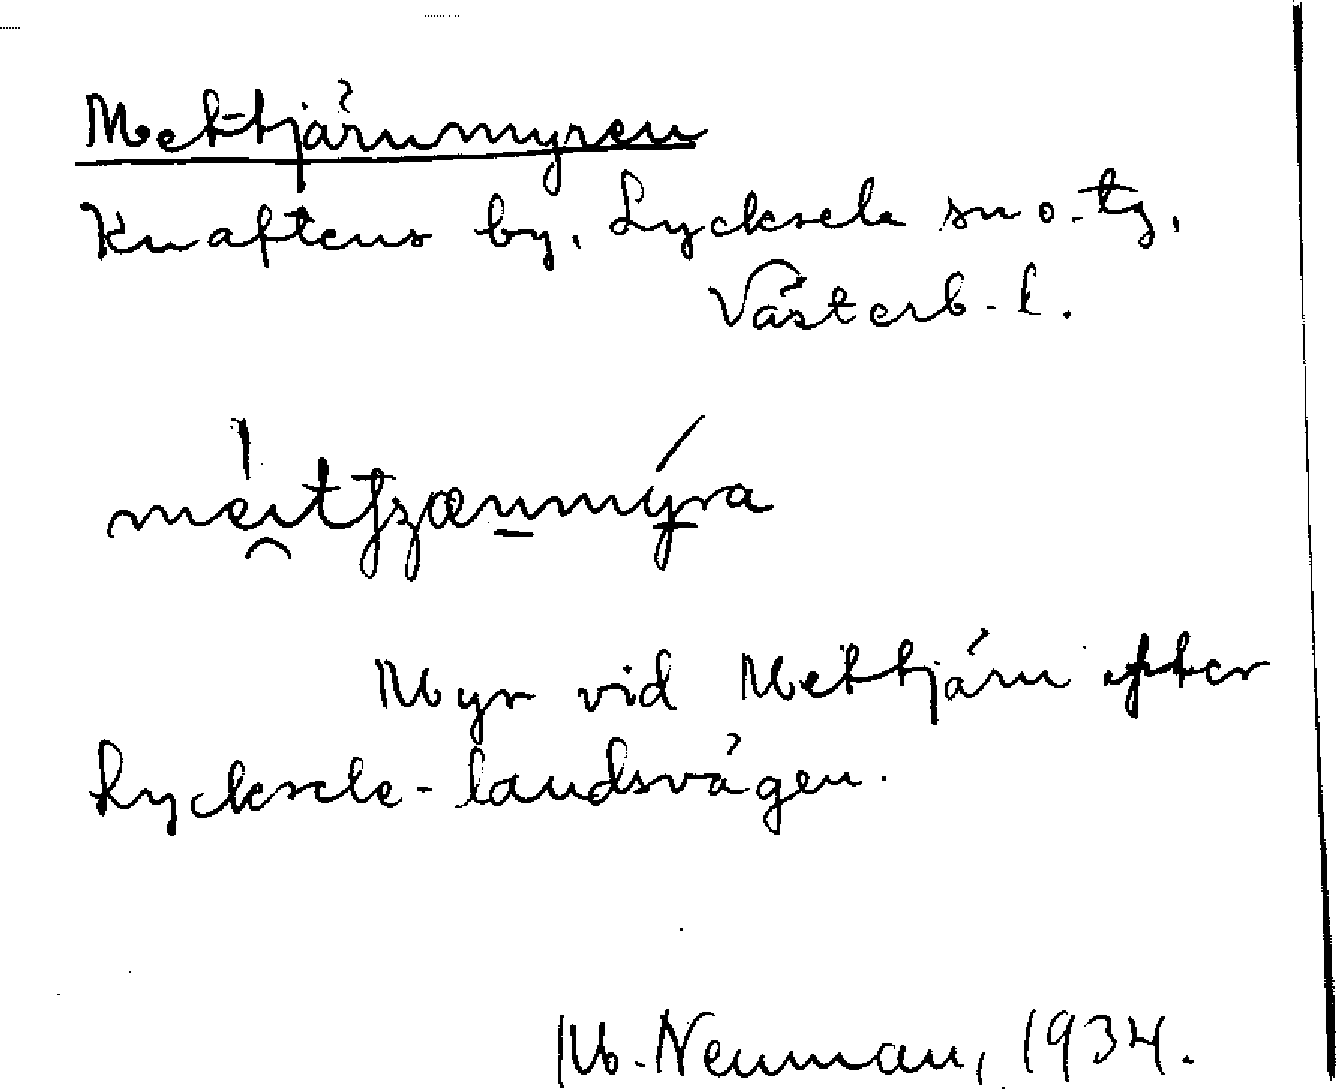 Mettjärnmyren
Knaftens by. Lycksele sn o. tg.
Västerb. l.
Myr vid Mettjärn efter
Lycksele-landsvägen.
M. Neuman, 1934.